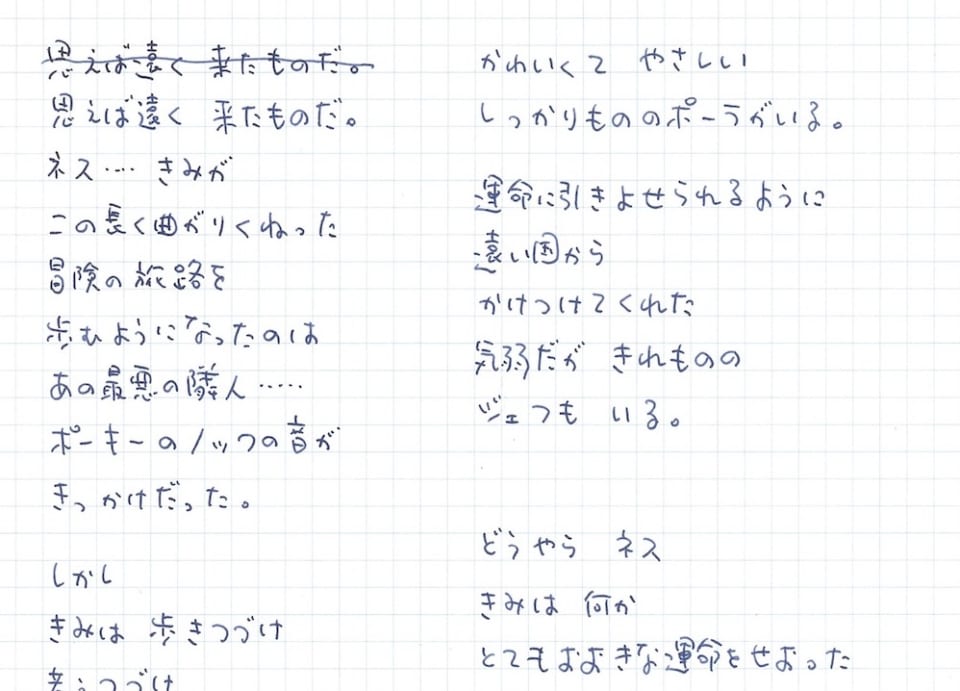 思えば遠く 来たものだ。
思えば遠く 来たものだ。
ネス‥‥ きみが
この長く曲がりくねった
冒険の旅路を
歩むようになったのは
あの最悪の隣人‥‥‥
ポーキーのノックの音が
きっかけだった。
しかし
きみは 歩きつづけ
考えつづけ
かわいくて やさしい
しっかりもののポーラがいる。
運命に引きよせられるように
遠い国から
かけつけてくれた
気弱だが きれものの
ジェフも いる。
どうやら ネス
きみは 何か
とてもおおきな運命をせおった